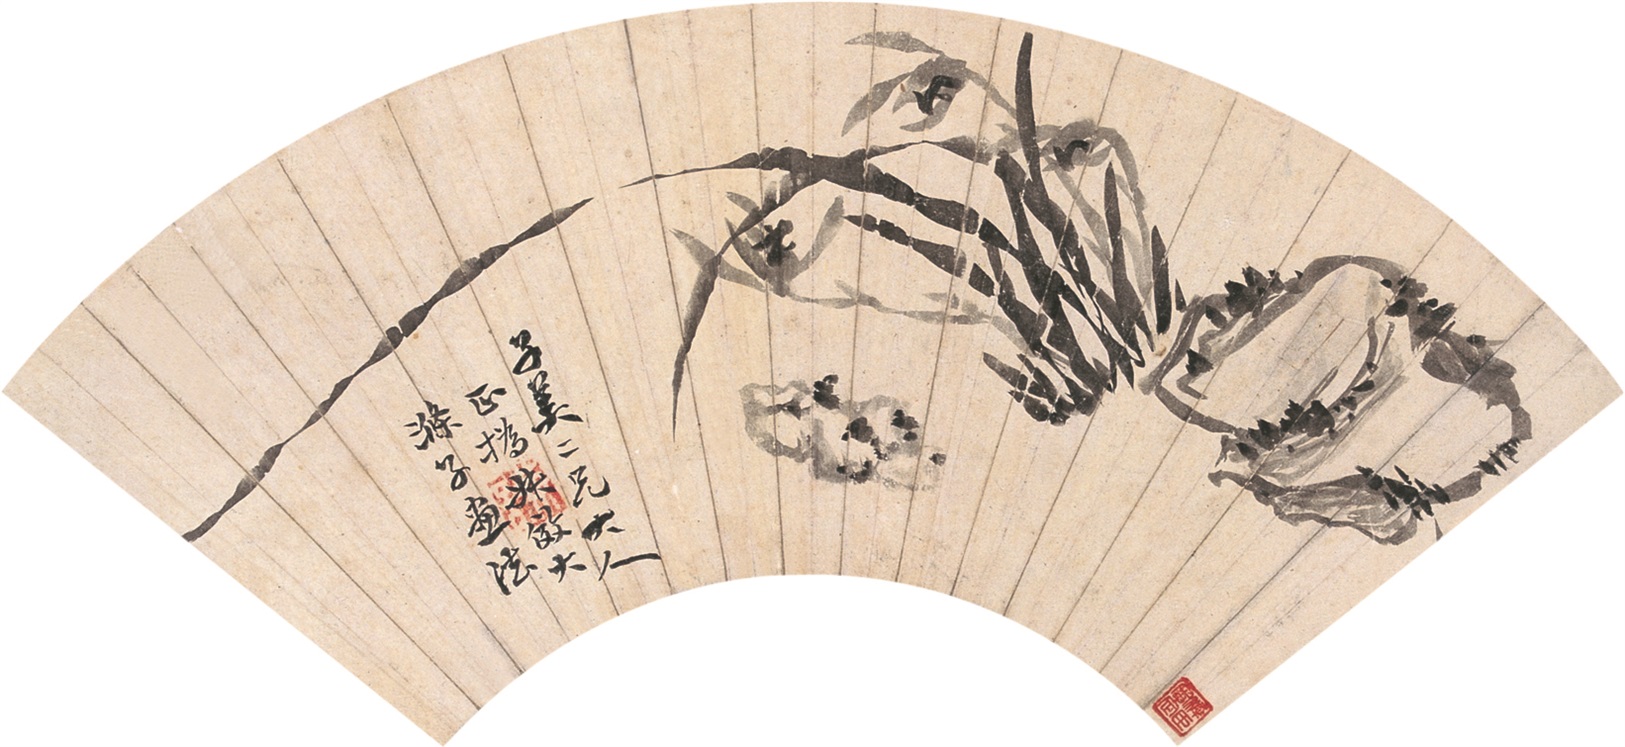 子美二兄大人
正撝叔效大
滌子畫法